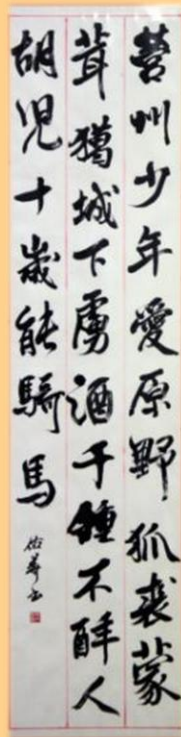 營州少年愛原野狐裘蒙
茸獵城下虜酒千鍾不醉人
胡兒十歲能騎馬